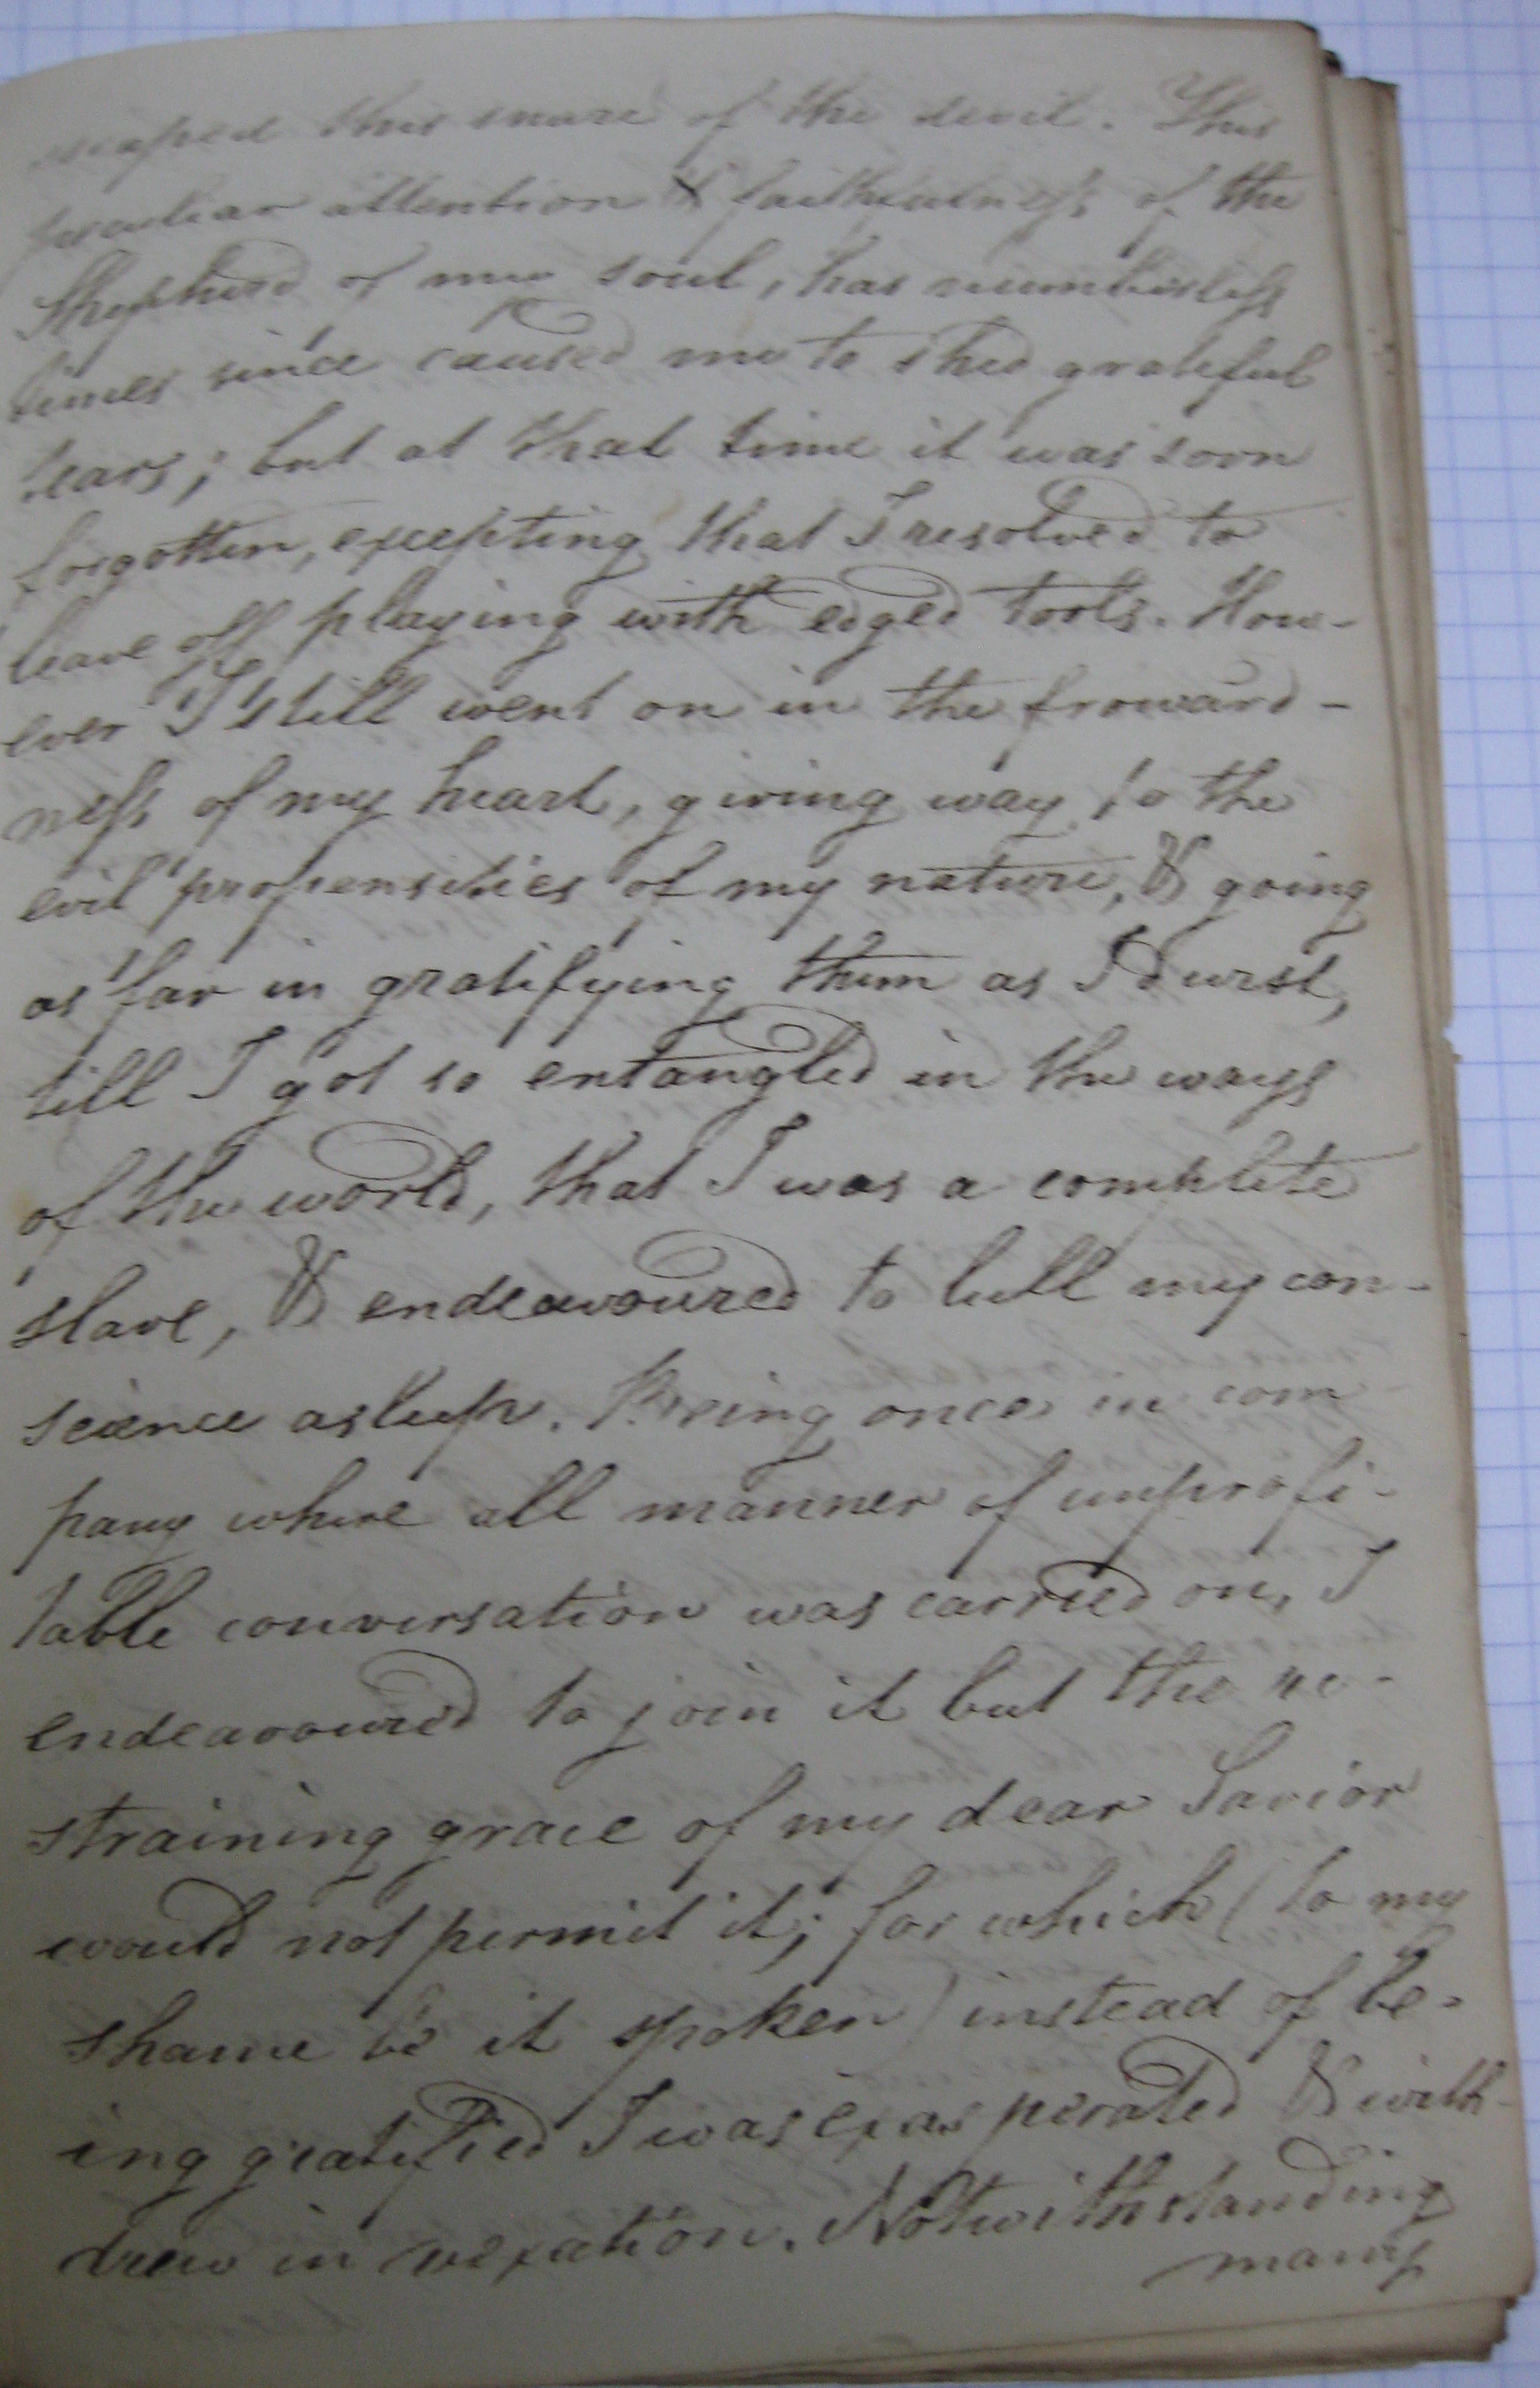 escaped this snare of the devil. This
peculiar attention & faithfulness of the
Shepherd of my soul, has numberless
times since caused me to shed grateful
tears; but at that time it was soon
forgotten, excepting that I resolved to
leave off playing with edged tools. How-
ever I still went on in the froward-
ness of my heart, giving way to the
evil propensities of my nature, & going
as far in gratifying them as I durst,
till I got so entangled in the ways
of the world, that I was a complete
slave, & endeavoured to lull my con-
science asleep. Being once in com
pany where all manner of unprofi-
table conversation was carried on, I
endeavoured to join it but the re-
straining grace of my dear Savior
would not permit it; for which (to my
shame be it spoken) instead of be-
ing gratified I was exasperated & with-
drew in vexation. Notwithstanding
many